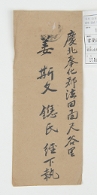 慶北奉化郡法田面尺谷里
姜斯文 㒇氏 經下執